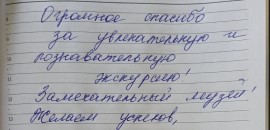 Огромное спасибо
за увлекательную и
познавательную
экскурсию!
Замечательный музей!
Желаем успехов,